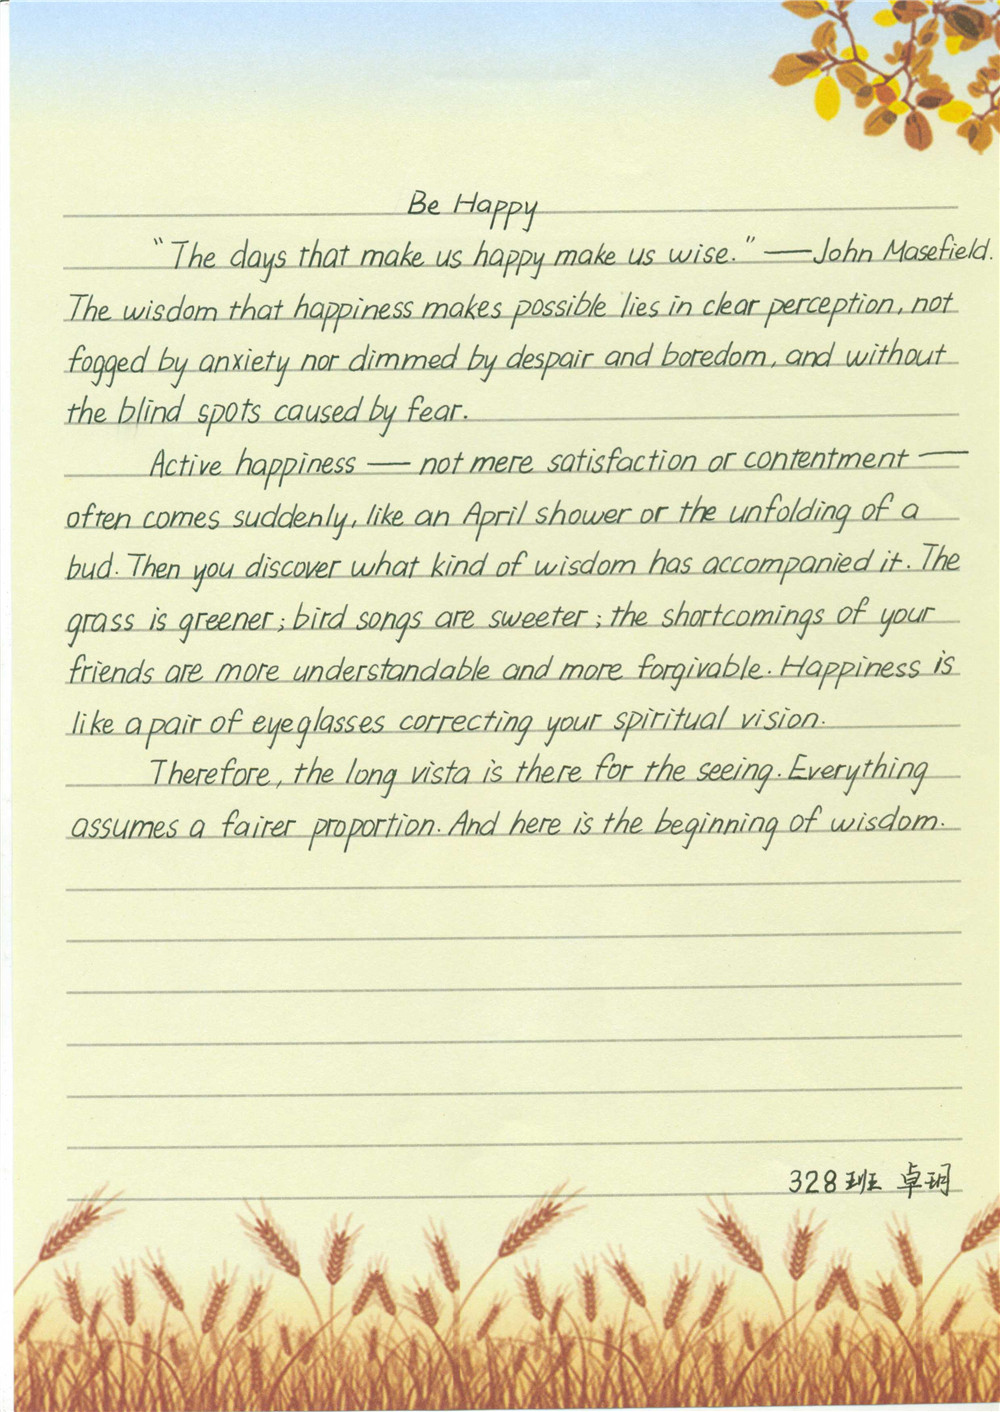 Be Happy
"The days that make us happy make us wise." — John Masefield.
The wisdom that happiness makes possible lies in clear perception, not
fogged by anxiety nor dimmed by despair and boredom, and without
the blind spots caused by fear.
Active happiness — not mere satisfaction or contentment —
often comes suddenly, like an April shower or the unfolding of a
bud. Then you discover what kind of wisdom has accompanied it. The
grass is greener; bird songs are sweeter; the shortcomings of your
friends are more understandable and more forgivable. Happiness is
like a pair of eyeglasses correcting your spiritual vision.
Therefore, the long vista is there for the seeing. Everything
assumes a fairer proportion. And here is the beginning of wisdom.
328班 卓玥